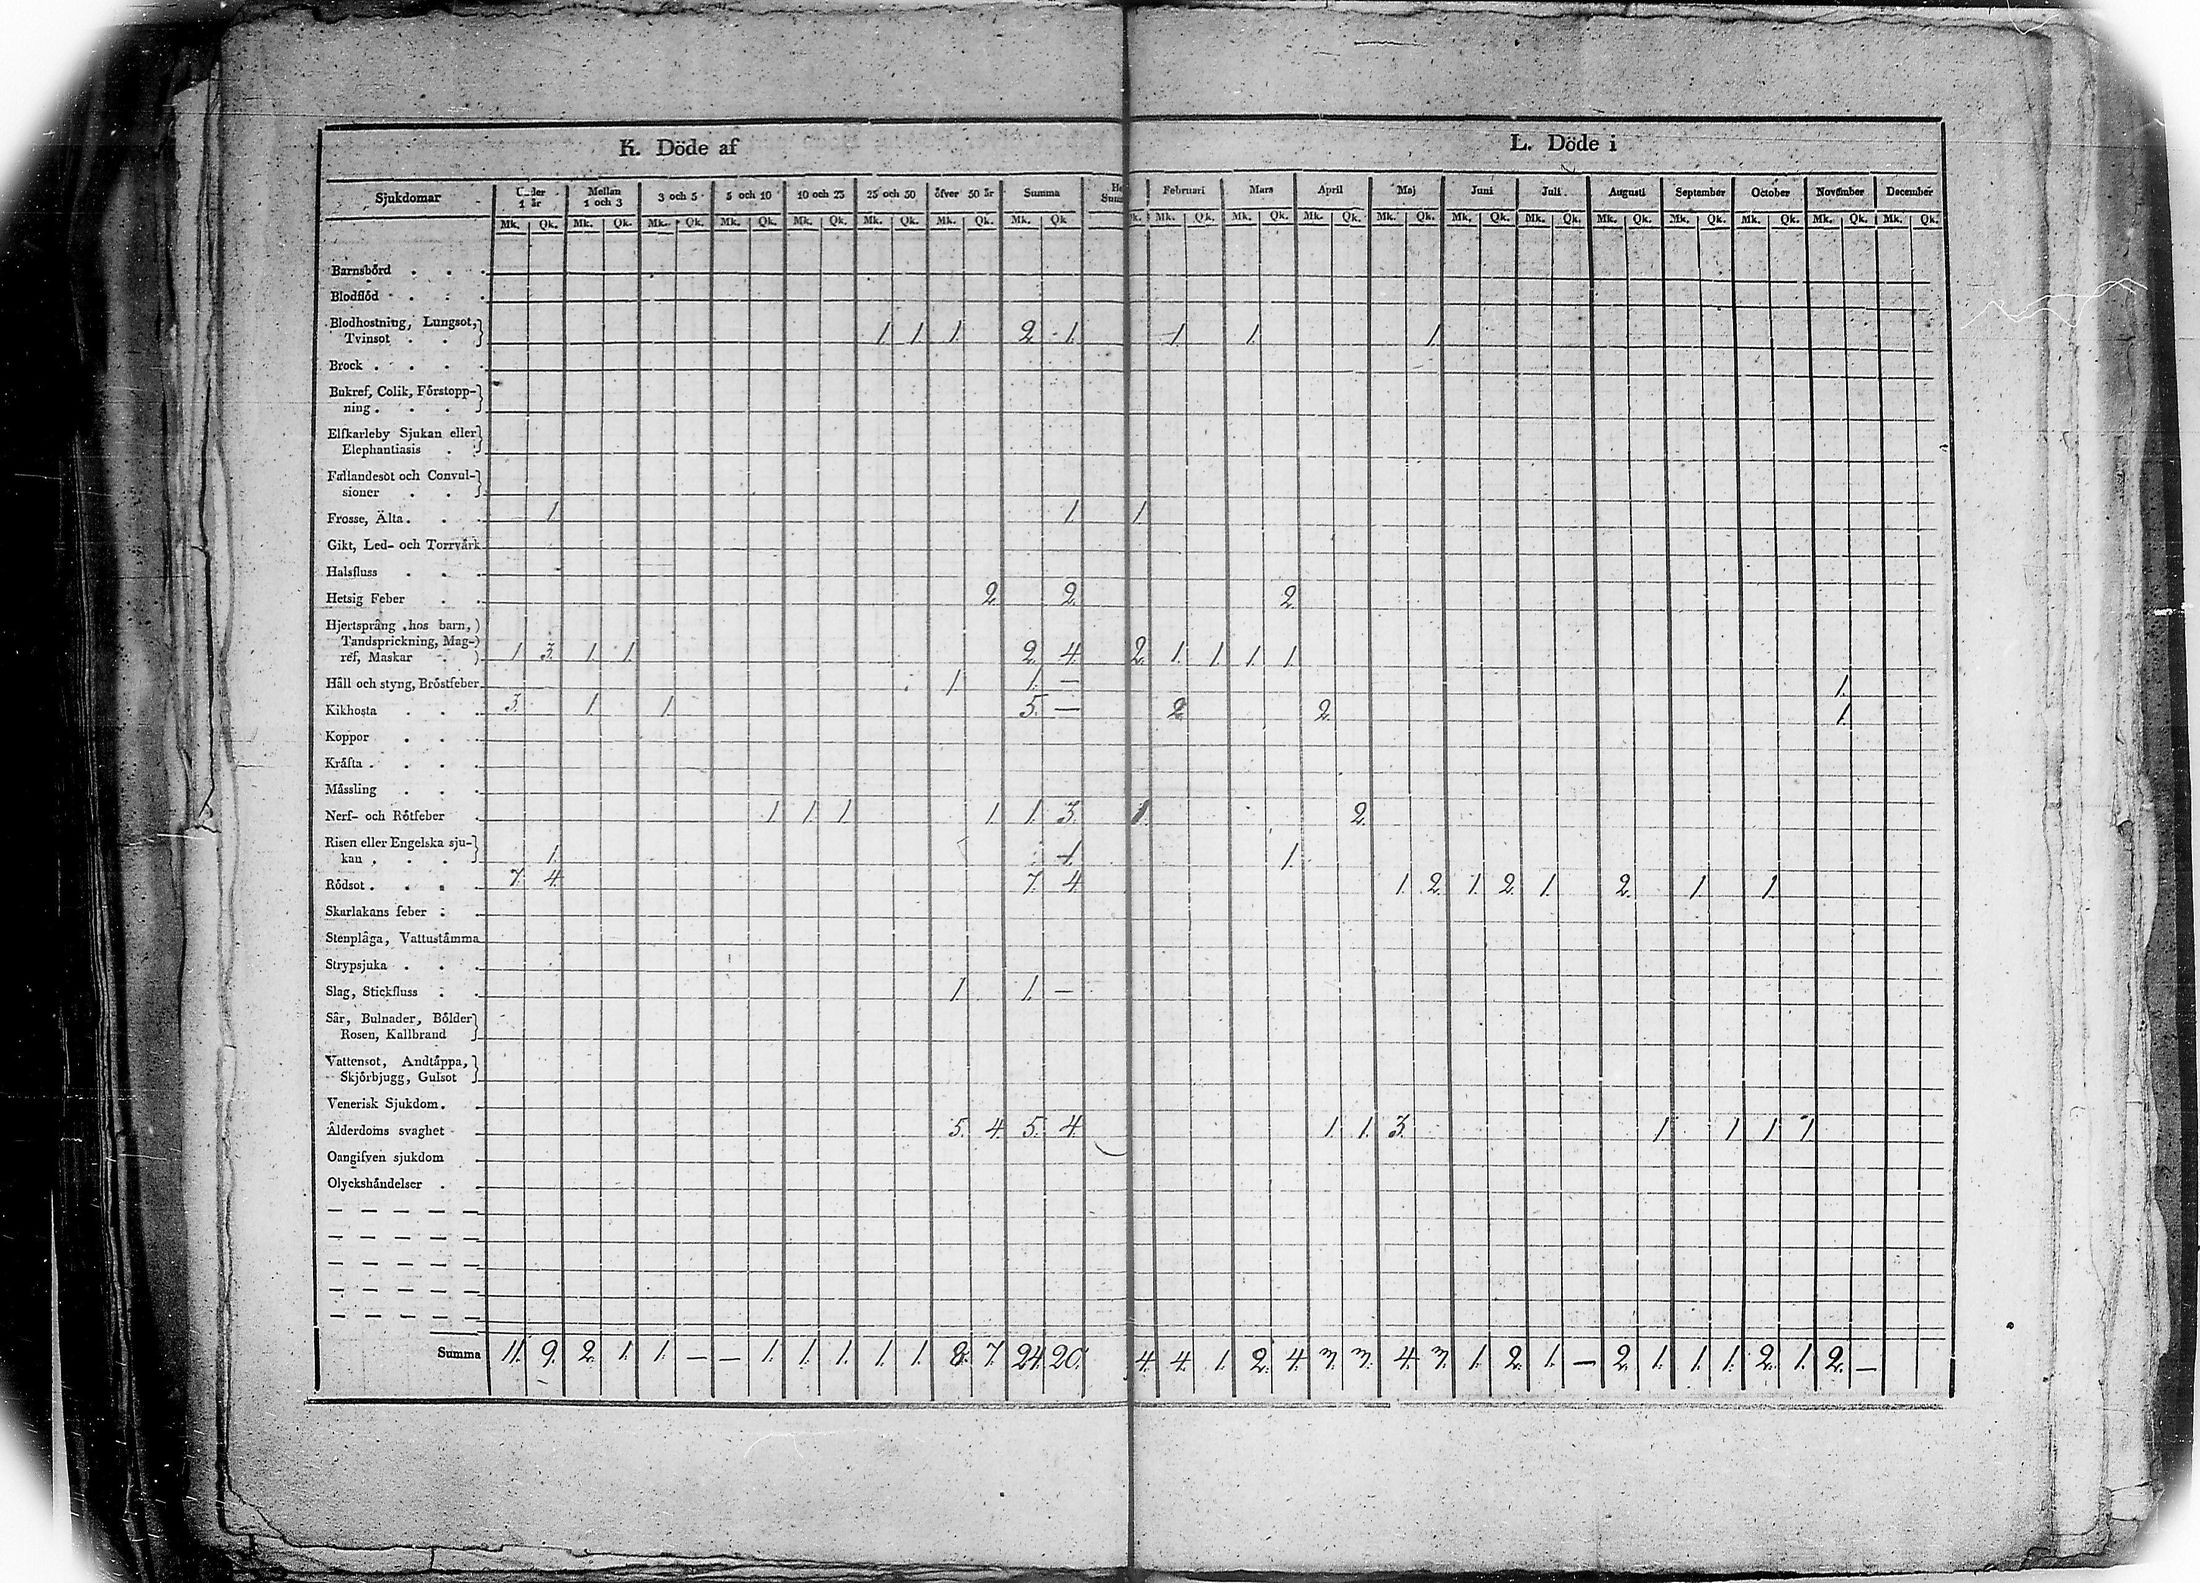 K. Döde af L. Döde i
Sjukdomar Under 1 år Mellan 1 och 3 3 och 5 5 och 10 10 och 25 25 och 50 öfver 50 år Summa Februari Mars April Maj Juni Juli Augusti September October November December
Mk. Qk. Mk. Qk. Mk. Qk. Mk. Qk. Mk. Qk. Mk. Qk. Mk. Qk. Mk. Qk. Qk. Mk. Qk. Mk. Qk. Mk. Qk. Mk. Qk. Mk. Qk. Mk. Qk. Mk. Qk. Mk. Qk. Mk. Qk. Mk. Qk. Mk. Qk.
Barnsbörd . . .
Blodflöd . . .
Blodhostning, Lungsot,
Tvinsot . . . 1 1 1. 2. 1. 1. 1. 1.
Brock . . . .
Bukref, Colik, Förstopp-
ning . . .
Elfkarleby Sjukan eller
Elephantiasis . .
Fallandesot och Convul-
sioner . . .
Frosse, Älta . . . 1 1. 1
Gikt, Led- och Torrvärk
Halsfluss . . .
Hetsig Feber . . 2 2. 2
Hjertsprång hos barn,
Tandsprickning, Mag-
ref, Maskar . 1 3. 1. 1. 2. 4. 2. 1. 1. 1. 1.
Håll och styng, Bröstfeber 1 1. — 1.
Kikhosta . . . 3. 1. 1 5. — 2. 2. 1.
Koppor . . .
Kräfta . . . .
Mässling . . .
Nerf- och Rötfeber . 1. 1. 1. 1. 1. 3. 1. 2.
Risen eller Engelska sju-
kan . . . 1. 1. 1.
Rödsot . . . . 7. 4. 7. 4 1. 2. 1. 2. 1. 2. 1. 1.
Skarlakans feber . .
Stenplåga, Vattustämma
Strypsjuka . . .
Slag, Stickfluss . . 1. 1. —
Sår, Bulnader, Bölder
Rosen, Kallbrand
Vattensot, Andtäppa,
Skjörbjugg, Gulsot
Venerisk Sjukdom . .
Ålderdoms svaghet 5. 4. 5. 4. 1. 1. 3. 1 1 1 1
Oangifven sjukdom .
Olyckshändelser . .
Summa 11. 9. 2. 1. 1. — — 1. 1. 1. 1. 1. 8. 7. 24. 20. 4. 4. 1. 2. 4. 3. 3. 4. 3. 1. 2. 1. — 2. 1. 1. 1. 2. 1. 2. —